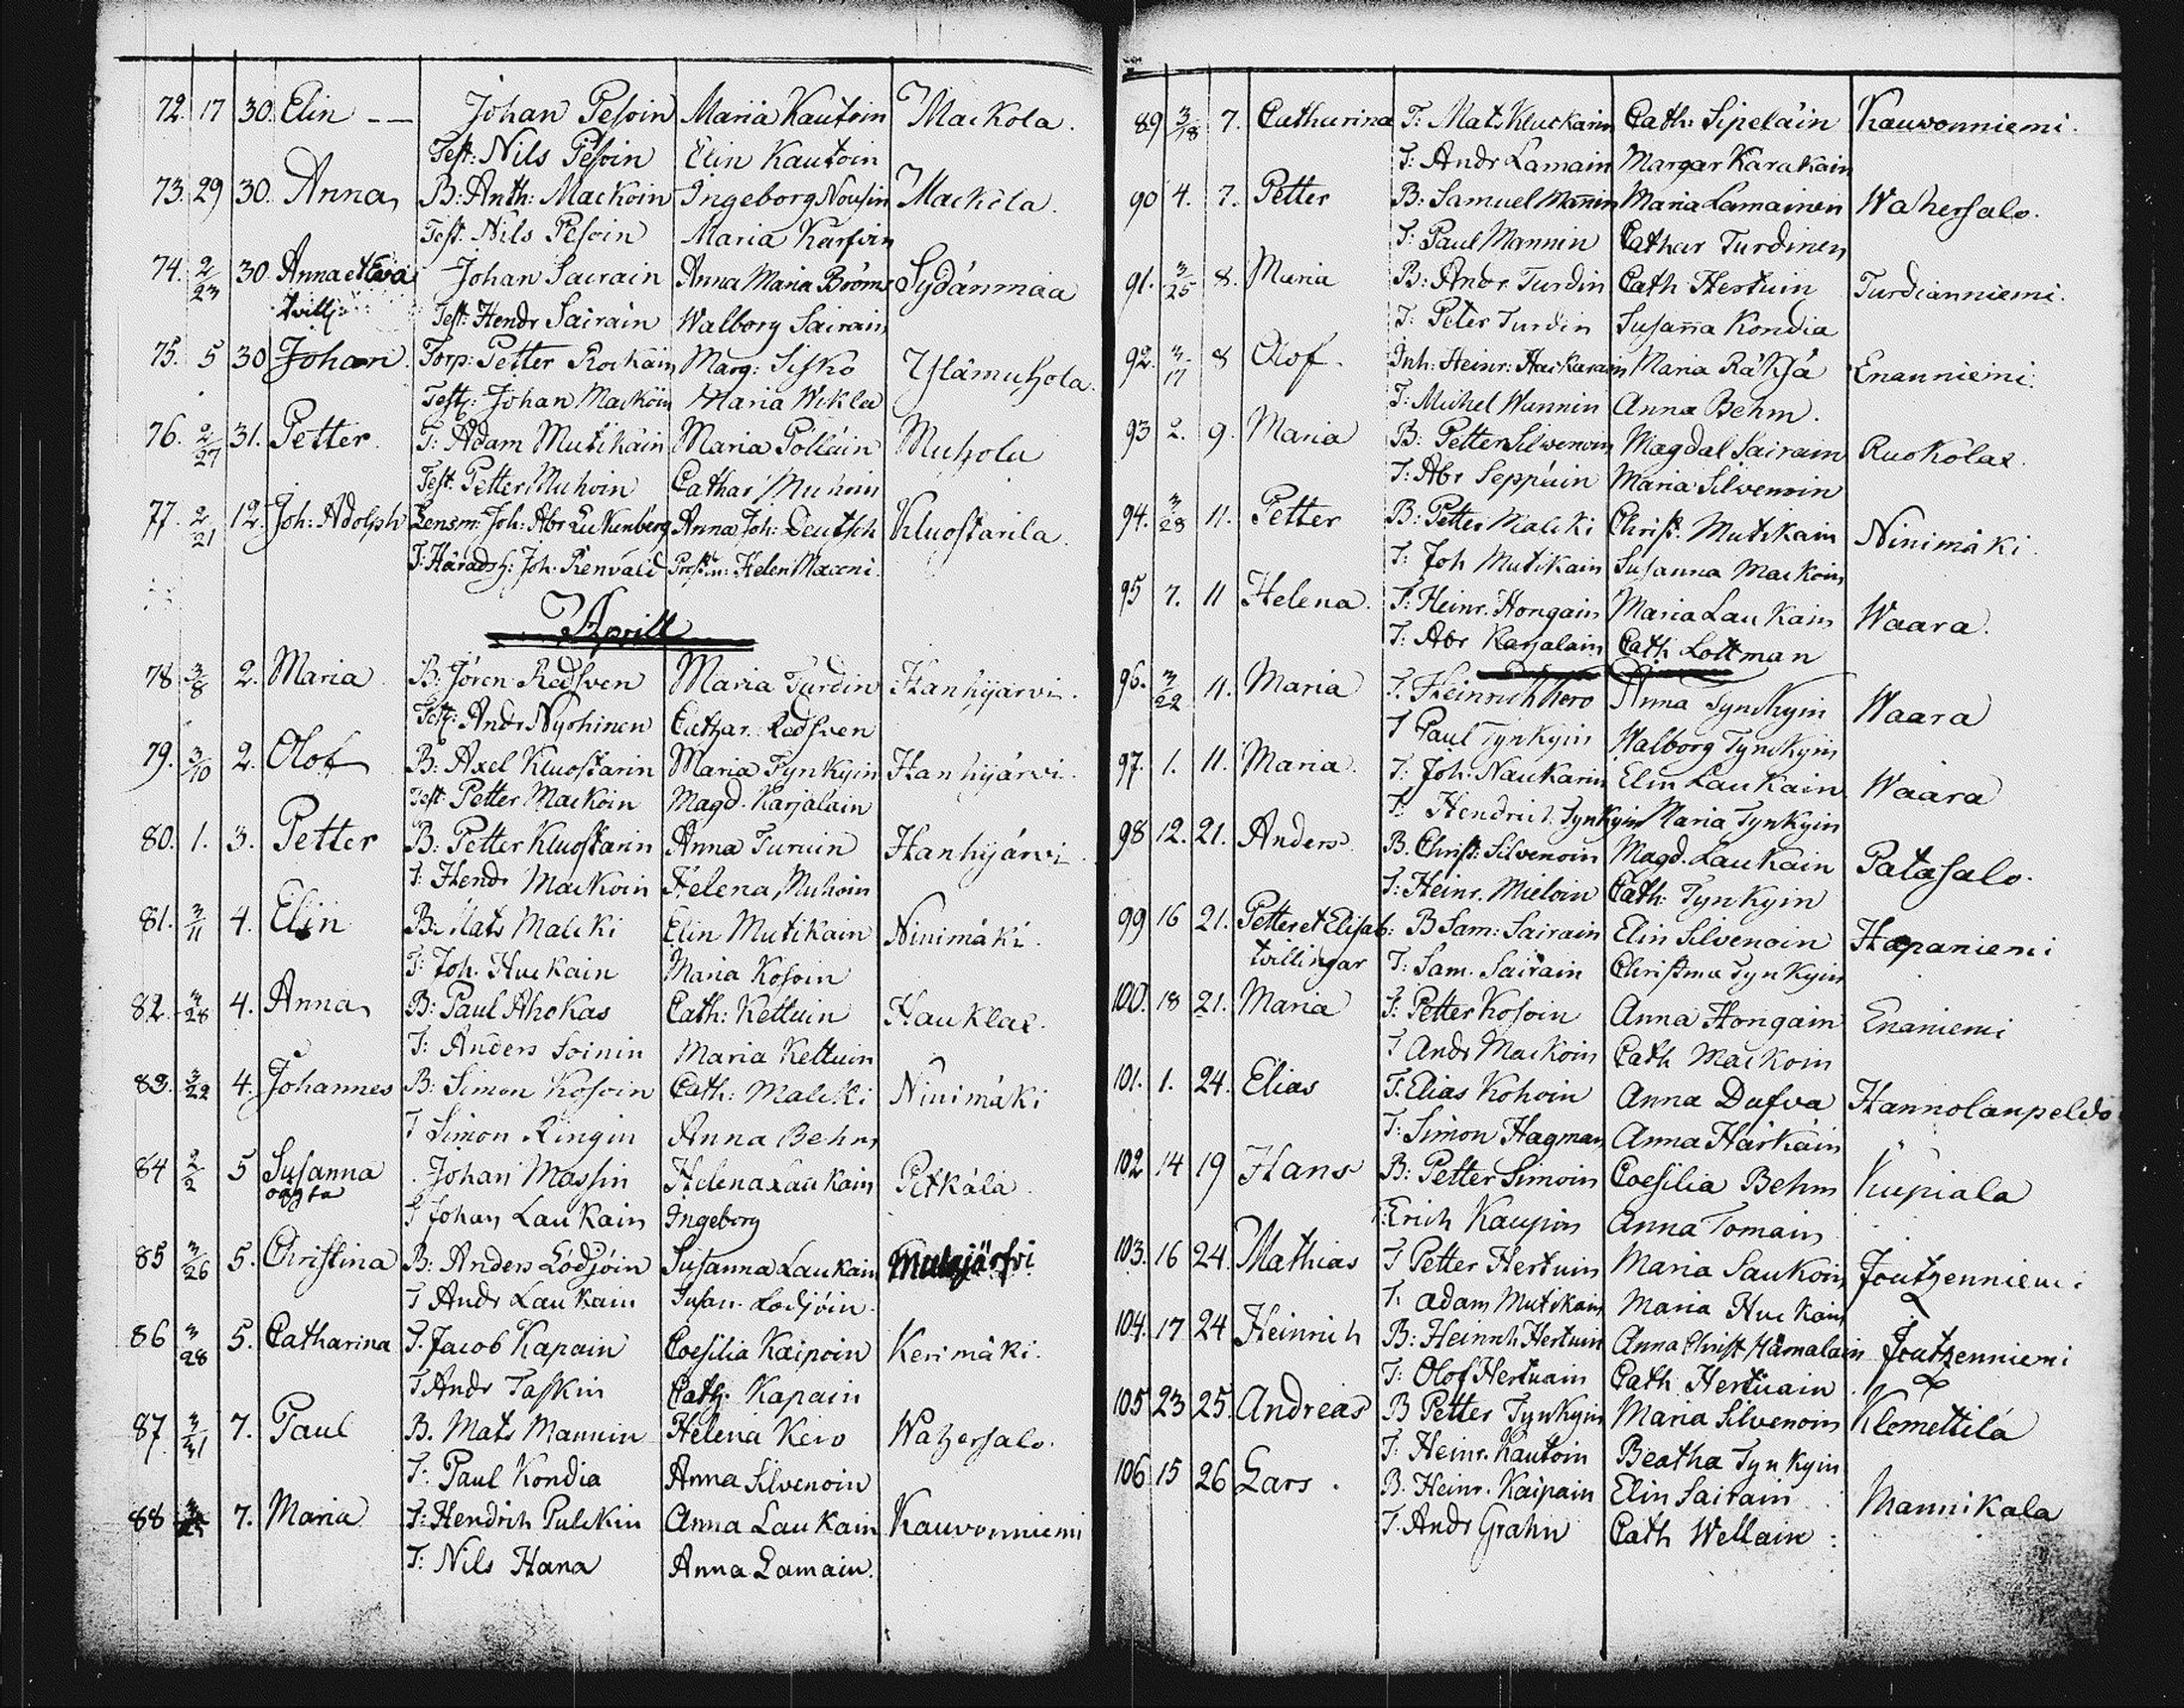 72. 17 30. Elin -- Johan Pesoin Maria Kautoin Mackola.
Test: Nils Pesoin Elin Kautoin
73. 29 30. Anna B: Anth: Mackoin Ingeborg Nousin Mackola.
Test. Nils Pesoin Maria Karsoin
74. 2/23 30. Anna et Eva Johan Sairain Anna Maria Bröms Sydänmaa
twill: Test: Hendr Sairain Walborg Sairain
75. 5 30 Johan. Torp: Petter Rockain Marg: Sisko Ylämuhola.
Test: Johan Mackoin Maria Wikla
76. 2/27 31. Petter. T: Adam Mutikain Maria Polläin Muhola
Test. Petter Muhoin Cathar Muhoin
77. 2/21 12. Joh: Adolph Lensm: Joh: Abr Lukunberg Anna Joh: Deutsch Kluostarila.
T: Häradsh: Joh. Renvald Prostin: Helen Maconi.
Aprill
78 3/8 2. Maria. B: Jören Redsven Maria Turdin Hanhijärvi.
Test: Andr Nyrhinen Cathar. Redsven
79. 3/10 2. Olof B: Axel Kluostarin Maria Tynkyin Hanhijärvi.
Test: Petter Mackoin Magd. Karjalain
80. 1. 3. Petter B: Petter Kluostarin Anna Turuin Hanhijärvi.
T: Hendr Mackoin Helena Muhoin
81. 3/11 4. Elin B: Mats Malcki Elin Mutikain Ninimäki.
T: Joh. Huckain Maria Kosoin
82. 3/28 4. Anna B: Paul Ahokas Cath: Kettuin Hauklax.
T: Anders Soinin Maria Kettuin
83. 3/29 4. Johannes B: Simon Kosoin Cath: Malcki Ninimäki
T Simon Ringin Anna Behm
84 2/2 5 Susanna Johan Massin Helena Laukain Petkälä.
oägta T Johan Laukain Ingeborg
85 3/26 5. Christina B: Anders Lödjöin Susanna Laukain Mulajärfvi
T Andr Laukain Susan. Lodjöin.
86 3/28 5. Catharina T. Jacob Kapain Coesilia Kaipoin Kerimäki.
T Andr Taskin Cath. Kapain
87. 3/31 7. Paul B. Mats Mannin Helena Kero Wahersalo.
T: Paul Kondia Anna Silvenoin
88 7. Maria T: Hendrih Pulckin Anna Laukain Kauvonniemi
T: Nils Hana Anna Lamain.
89 3/18 7. Catharina T: Mats Kluckarin Cath: Sipeläin Kauvonniemi.
T: Andr Lamain Margar Karakain
90 4. 7. Petter B: Samuel Mannin Maria Lamainen Wahersalo.
T: Paul Mannin Cathar Turdinen
91. 3/25 8. Maria B: Andr. Turdin Cath Hertuin Turdianniemi.
T: Peter Turdin Susanna Kondia
92. 3/17 8 Olof. Inh: Heinr: Hackarain Maria Räkjä Enanniemi.
T: Michel Wannin Anna Behm.
93 2. 9. Maria B: Petter Silvenoin Magdal Sairain Ruokolax.
T: Abr Seppäin Maria Silvennoin
94. 3/28 11. Petter B: Petter Malcki Christ. Mutikain Ninimäki.
T: Joh Mutikain Susanna Mackoin
95 7. 11 Helena. T: Heinr. Hongain Maria Laukain Waara.
T: Abr Karjalain Cath Lottman
96. 3/22 11. Maria T. Heinrich Kero Anna Tynckyin Waara
T Paul Tynkyin Walborg Tynckyin
97. 1. 11. Maria. T: Joh: Naukarin Elin Laukain Waara
T: Hendrich Tynkyin Maria Tynkyin
98 12. 21. Anders. B. Christ: Silvenoin Magd. Laukain Patasalo.
T: Heinr. Mieloin Cath: Tynkyin
99 16 21. Petter et Elisab: B Sam: Sairain Elin Silvenoin Hapaniemi
twillingar T: Sam. Sairain Christina Tynkyin
100. 18 21. Maria T: Petter Kosoin Anna Hongain Enaniemi
T Andr Mackoin Cath Mackoin
101. 1. 24. Elias T. Elias Kohoin Anna Dufva Hannolanpeldo
T: Simon Hagman Anna Härkäin
102 14 19 Hans B: Petter Simoin Coesilia Behm Kupiala
T: Erich Kaupin Anna Tomain
103. 16 24. Mathias T Petter Hertuin Maria Saukoin Joutzenniemi
T. adam Mutikain Maria Huckain
104. 17 24 Heinrich B: Heinrih Hertuin Anna Christ Hämalain Joutzenniemi
T: Olof Hertuain Cath Hertuain
105 23 25. Andreas B Petter Tynkyin Maria Silvenoin Klemettilä
T: Heinr. Kautoin Beatha Tynkyin
106 15 26 Lars. B. Heinr. Kaipain Elin Sairain Mannikala
T. Andr Grahn Cath Wellain: